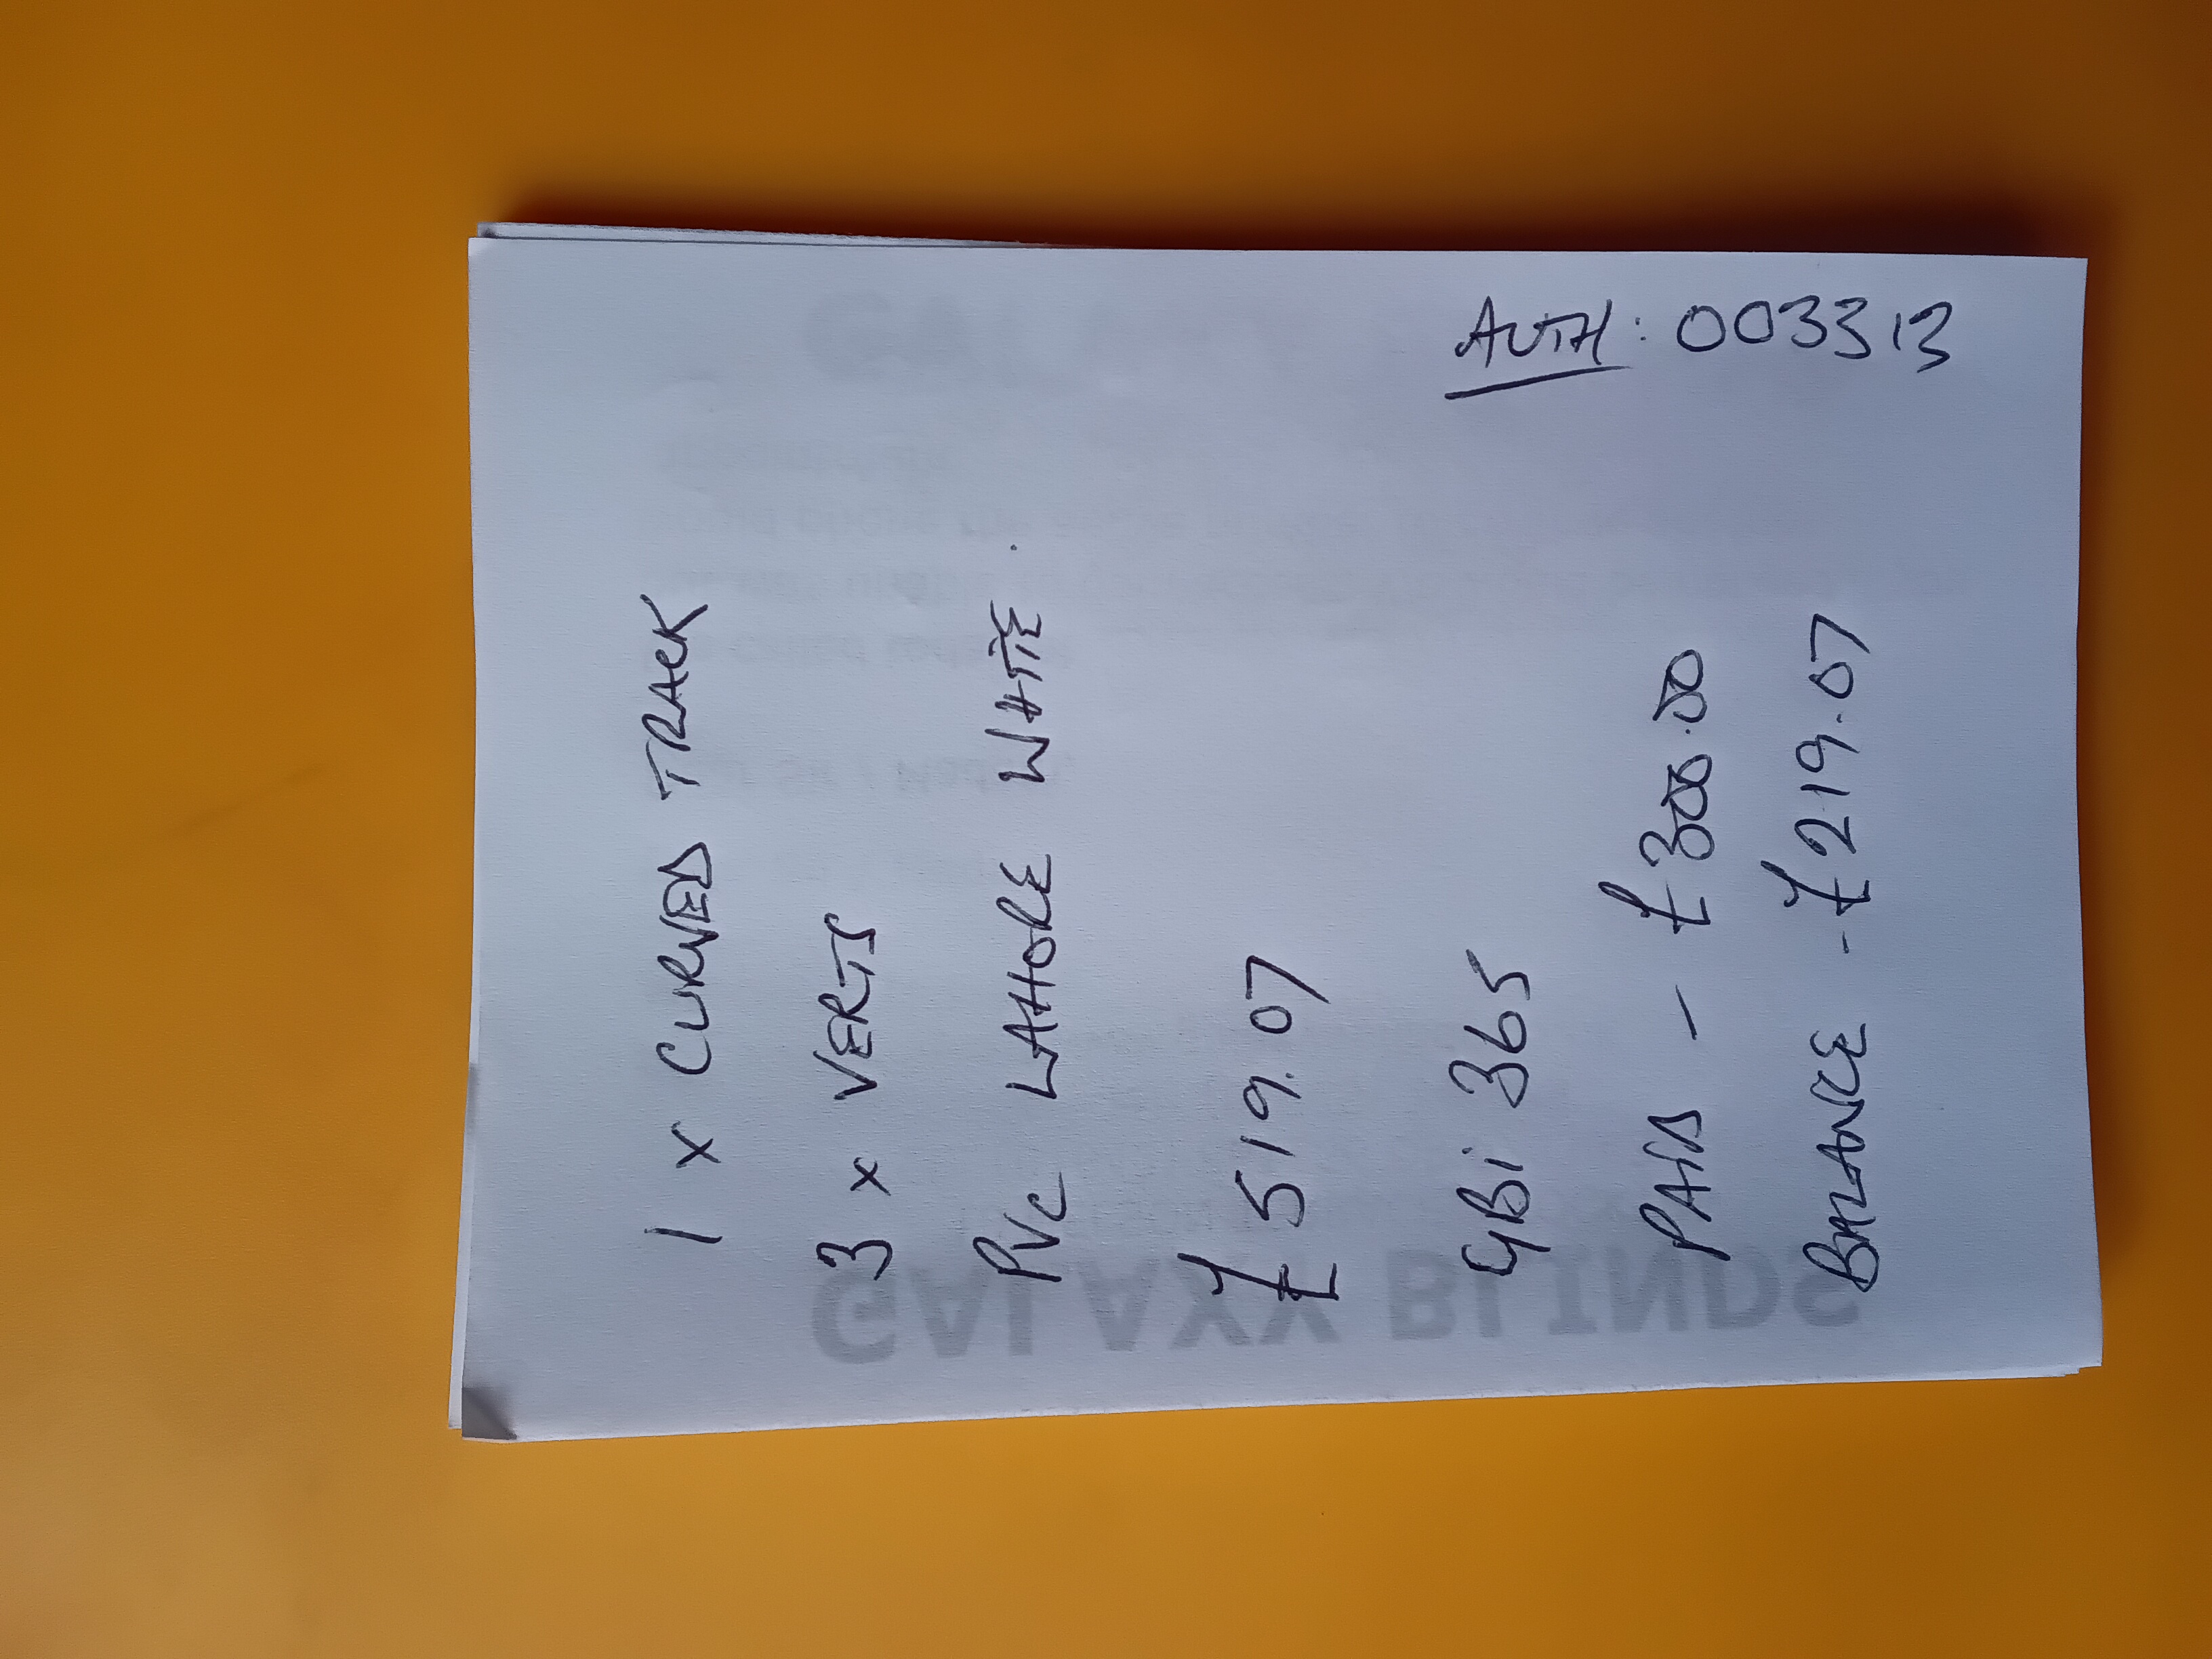 1 x CURVED TRACK
3 x VERTS
PVC LAHORE WHITE.
£519.07
GBi 365
PAID - £300.00
BALANCE - £219.07
AUTH: 003313
GALAXY BLINDS